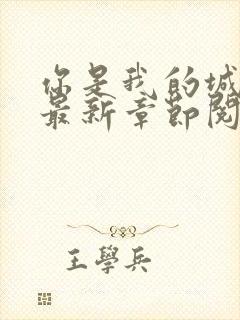 你是我的城
最新章節閱
王學兵